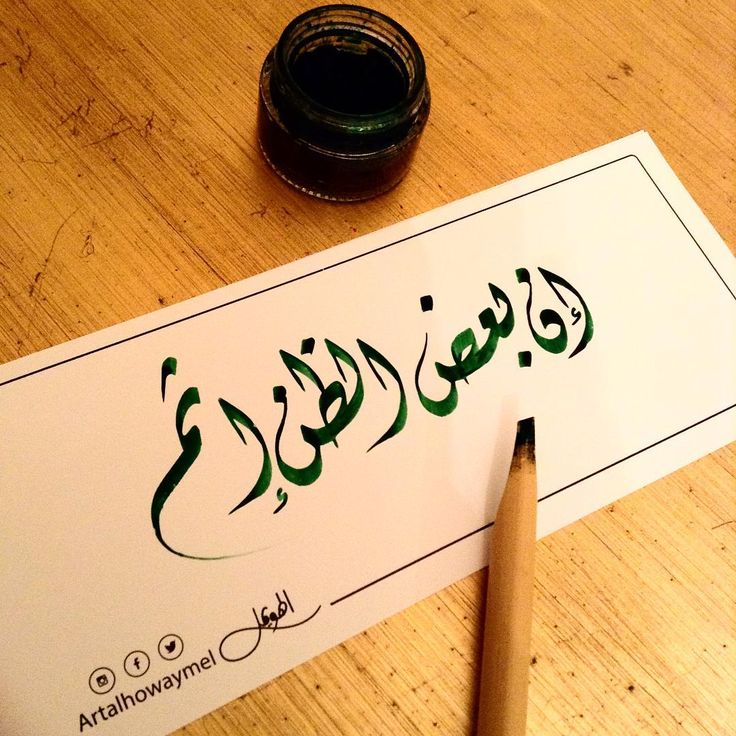 إن بعض الظن إثم
الهويمل
Artalhowaymel